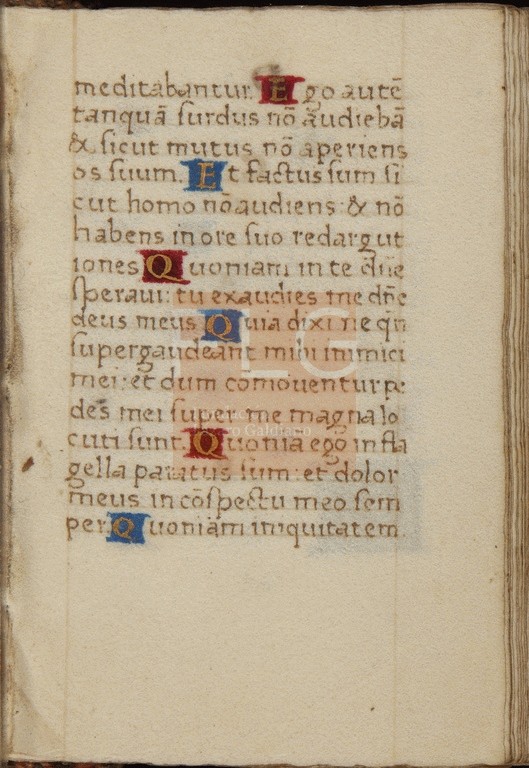 meditabantur. Ego autē
tanquā surdus nō audiebā
& sicut mutus nō aperiens
os suum. Et factus sum si
cut homo nō audiens: & nō
habens in ore suo redargut
iones Quoniam in te dñe
speraui: tu exaudies me dñe
deus meus Quia dixi ne qñ
supergaudeant mihi inimici
mei: et dum comouentur pe
des mei super me magna lo
cuti sunt. Quoniā ego in fla
gella paratus sum: et dolor
meus in cōspectu meo sem
per. Quoniam iniquitatem
LG
Galdiano